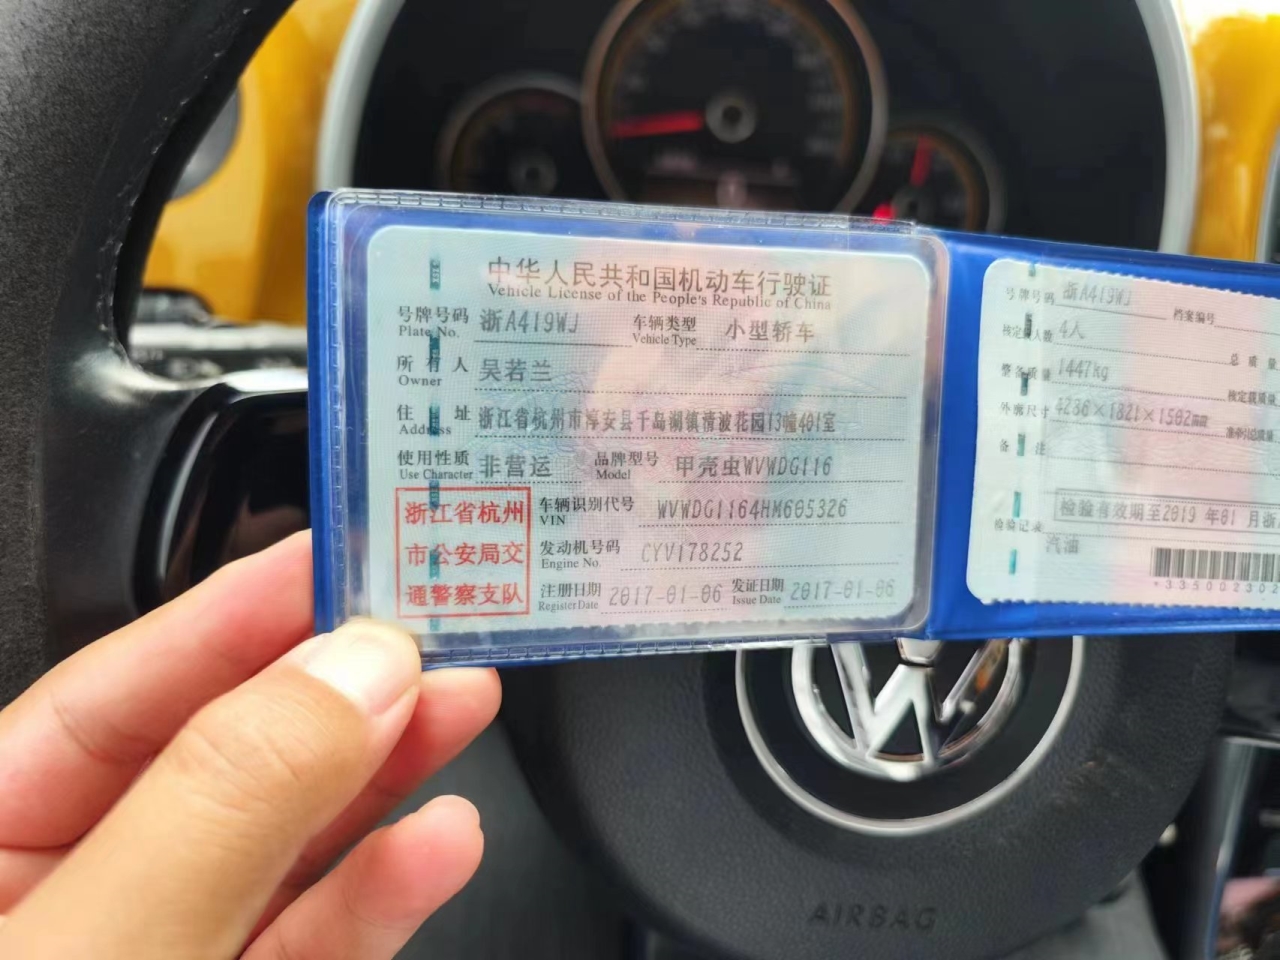 中华人民共和国机动车行驶证
Vehicle License of the People's Republic of China
号牌号码 浙A419WJ 车辆类型 小型轿车
Plate No. Vehicle Type
所有人 吴若兰
Owner
住址 浙江省杭州市淳安县千岛湖镇清波花园13幢401室
Address
使用性质 非营运 品牌型号 甲壳虫WVWDG116
Use Character Model
浙江省杭州
市公安局交
通警察支队
车辆识别代号 WVWDG1164HM605326
VIN
发动机号码 CYV178252
Engine No.
注册日期 2017-01-06 发证日期 2017-01-06
Register Date Issue Date
号牌号码 浙A419WJ 档案编号
核定载人数 4人 总质量
整备质量 1447kg 核定载质量
外廓尺寸 4236×1821×1502mm
备注
检验有效期至2019年01月浙
检验记录
汽油
*33500230
AIRBAG